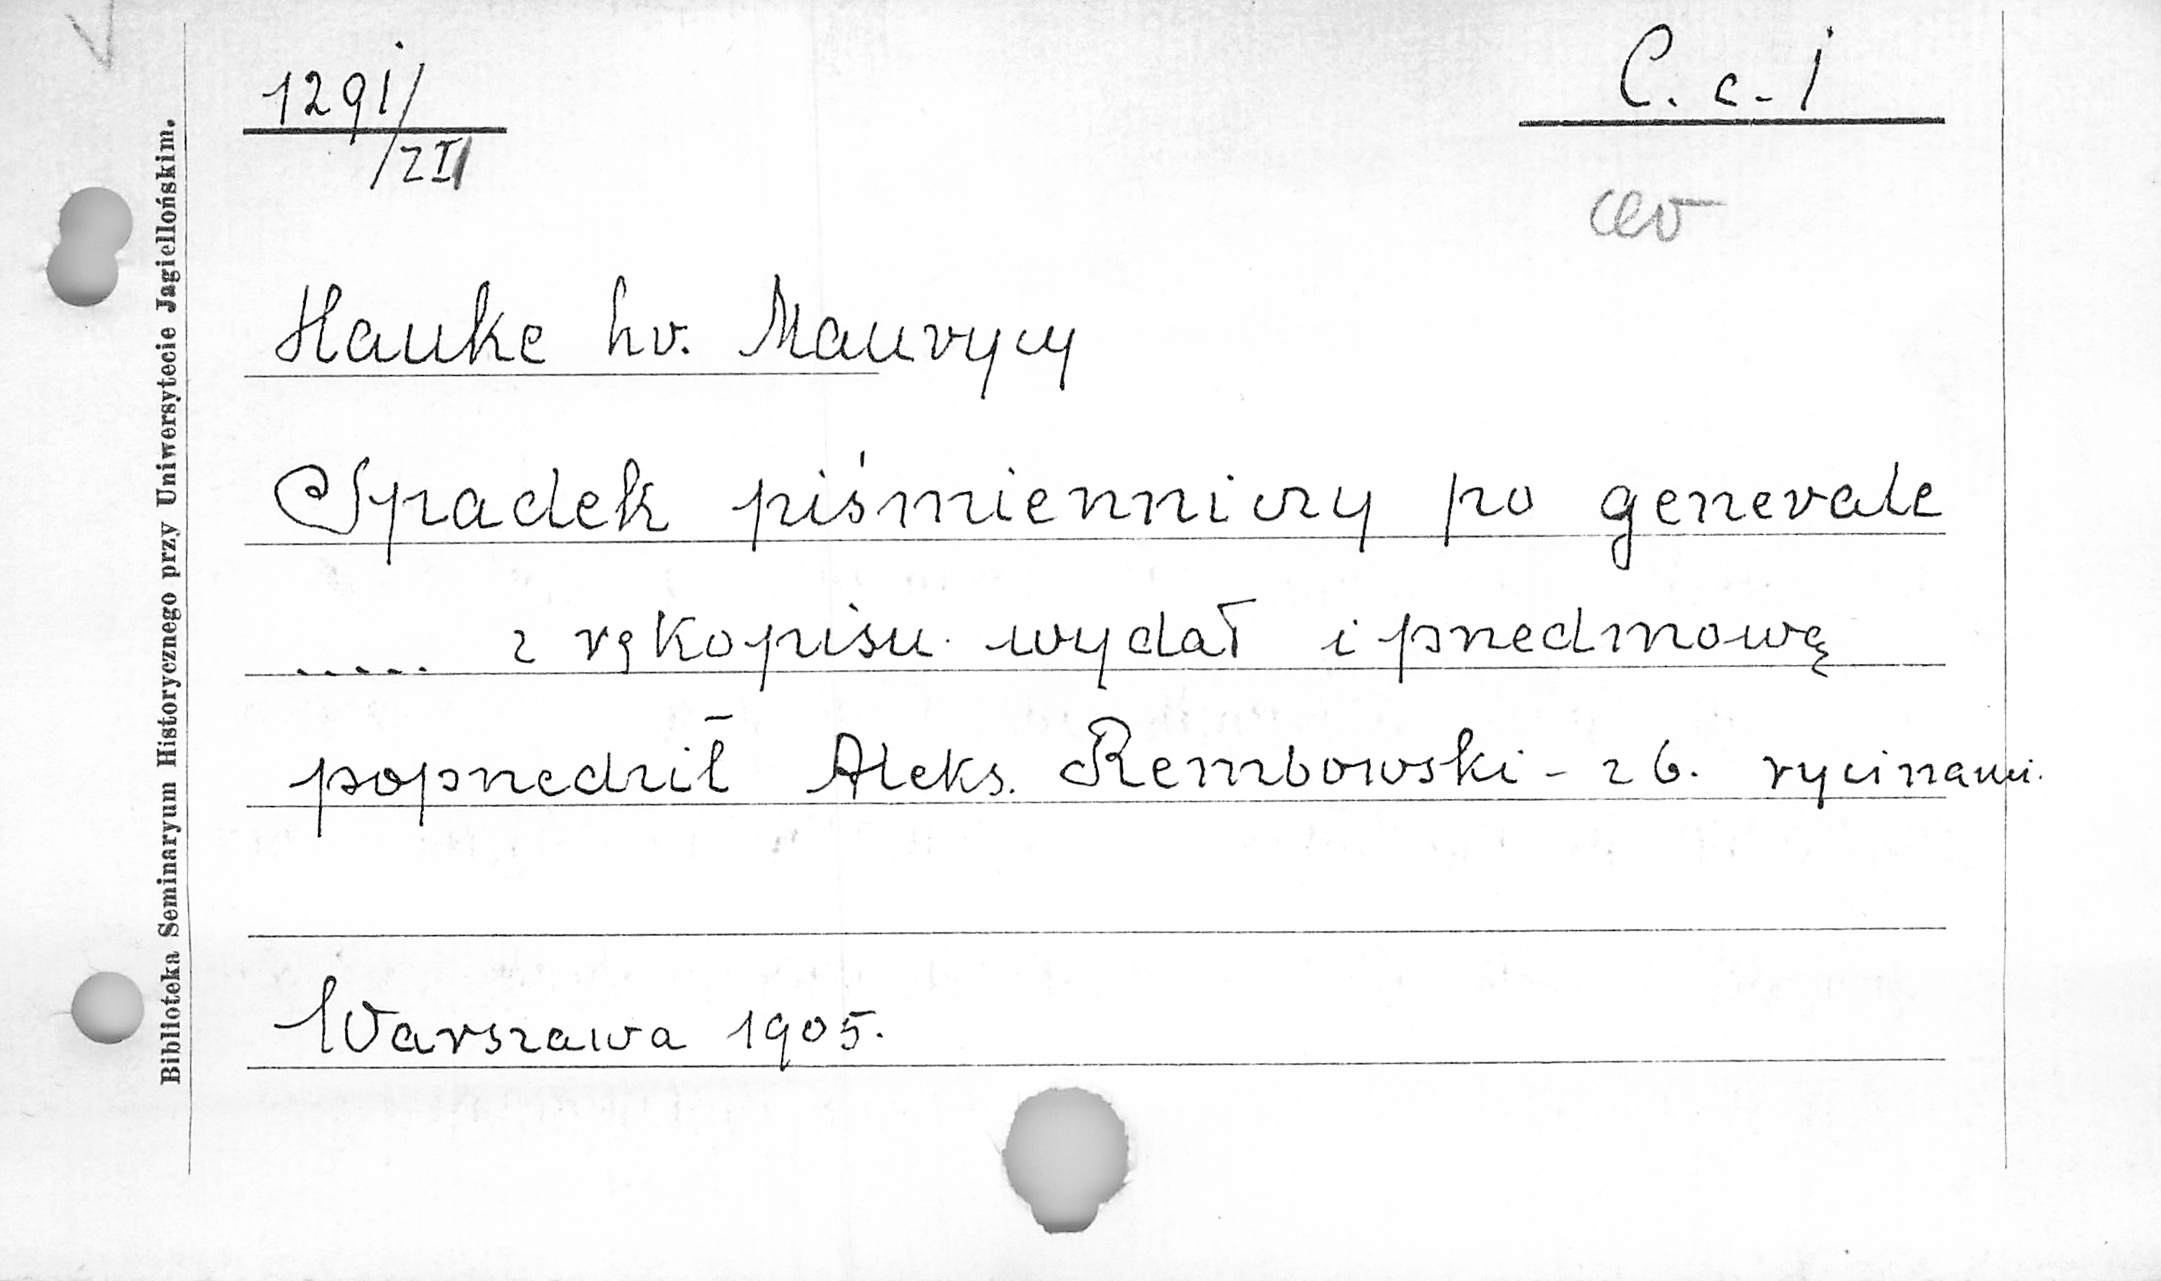 1291/ZII
C. c. I
Hauke hr. Maurycy
Spadek piśmienniczy po generale
..... z rękopisu wydał i przedmową
poprzedził Aleks. Rembowski - z 6. rycinami.
Warszawa 1905.
Biblioteka Seminaryum Historycznego przy Uniwersytecie Jagiellońskim.